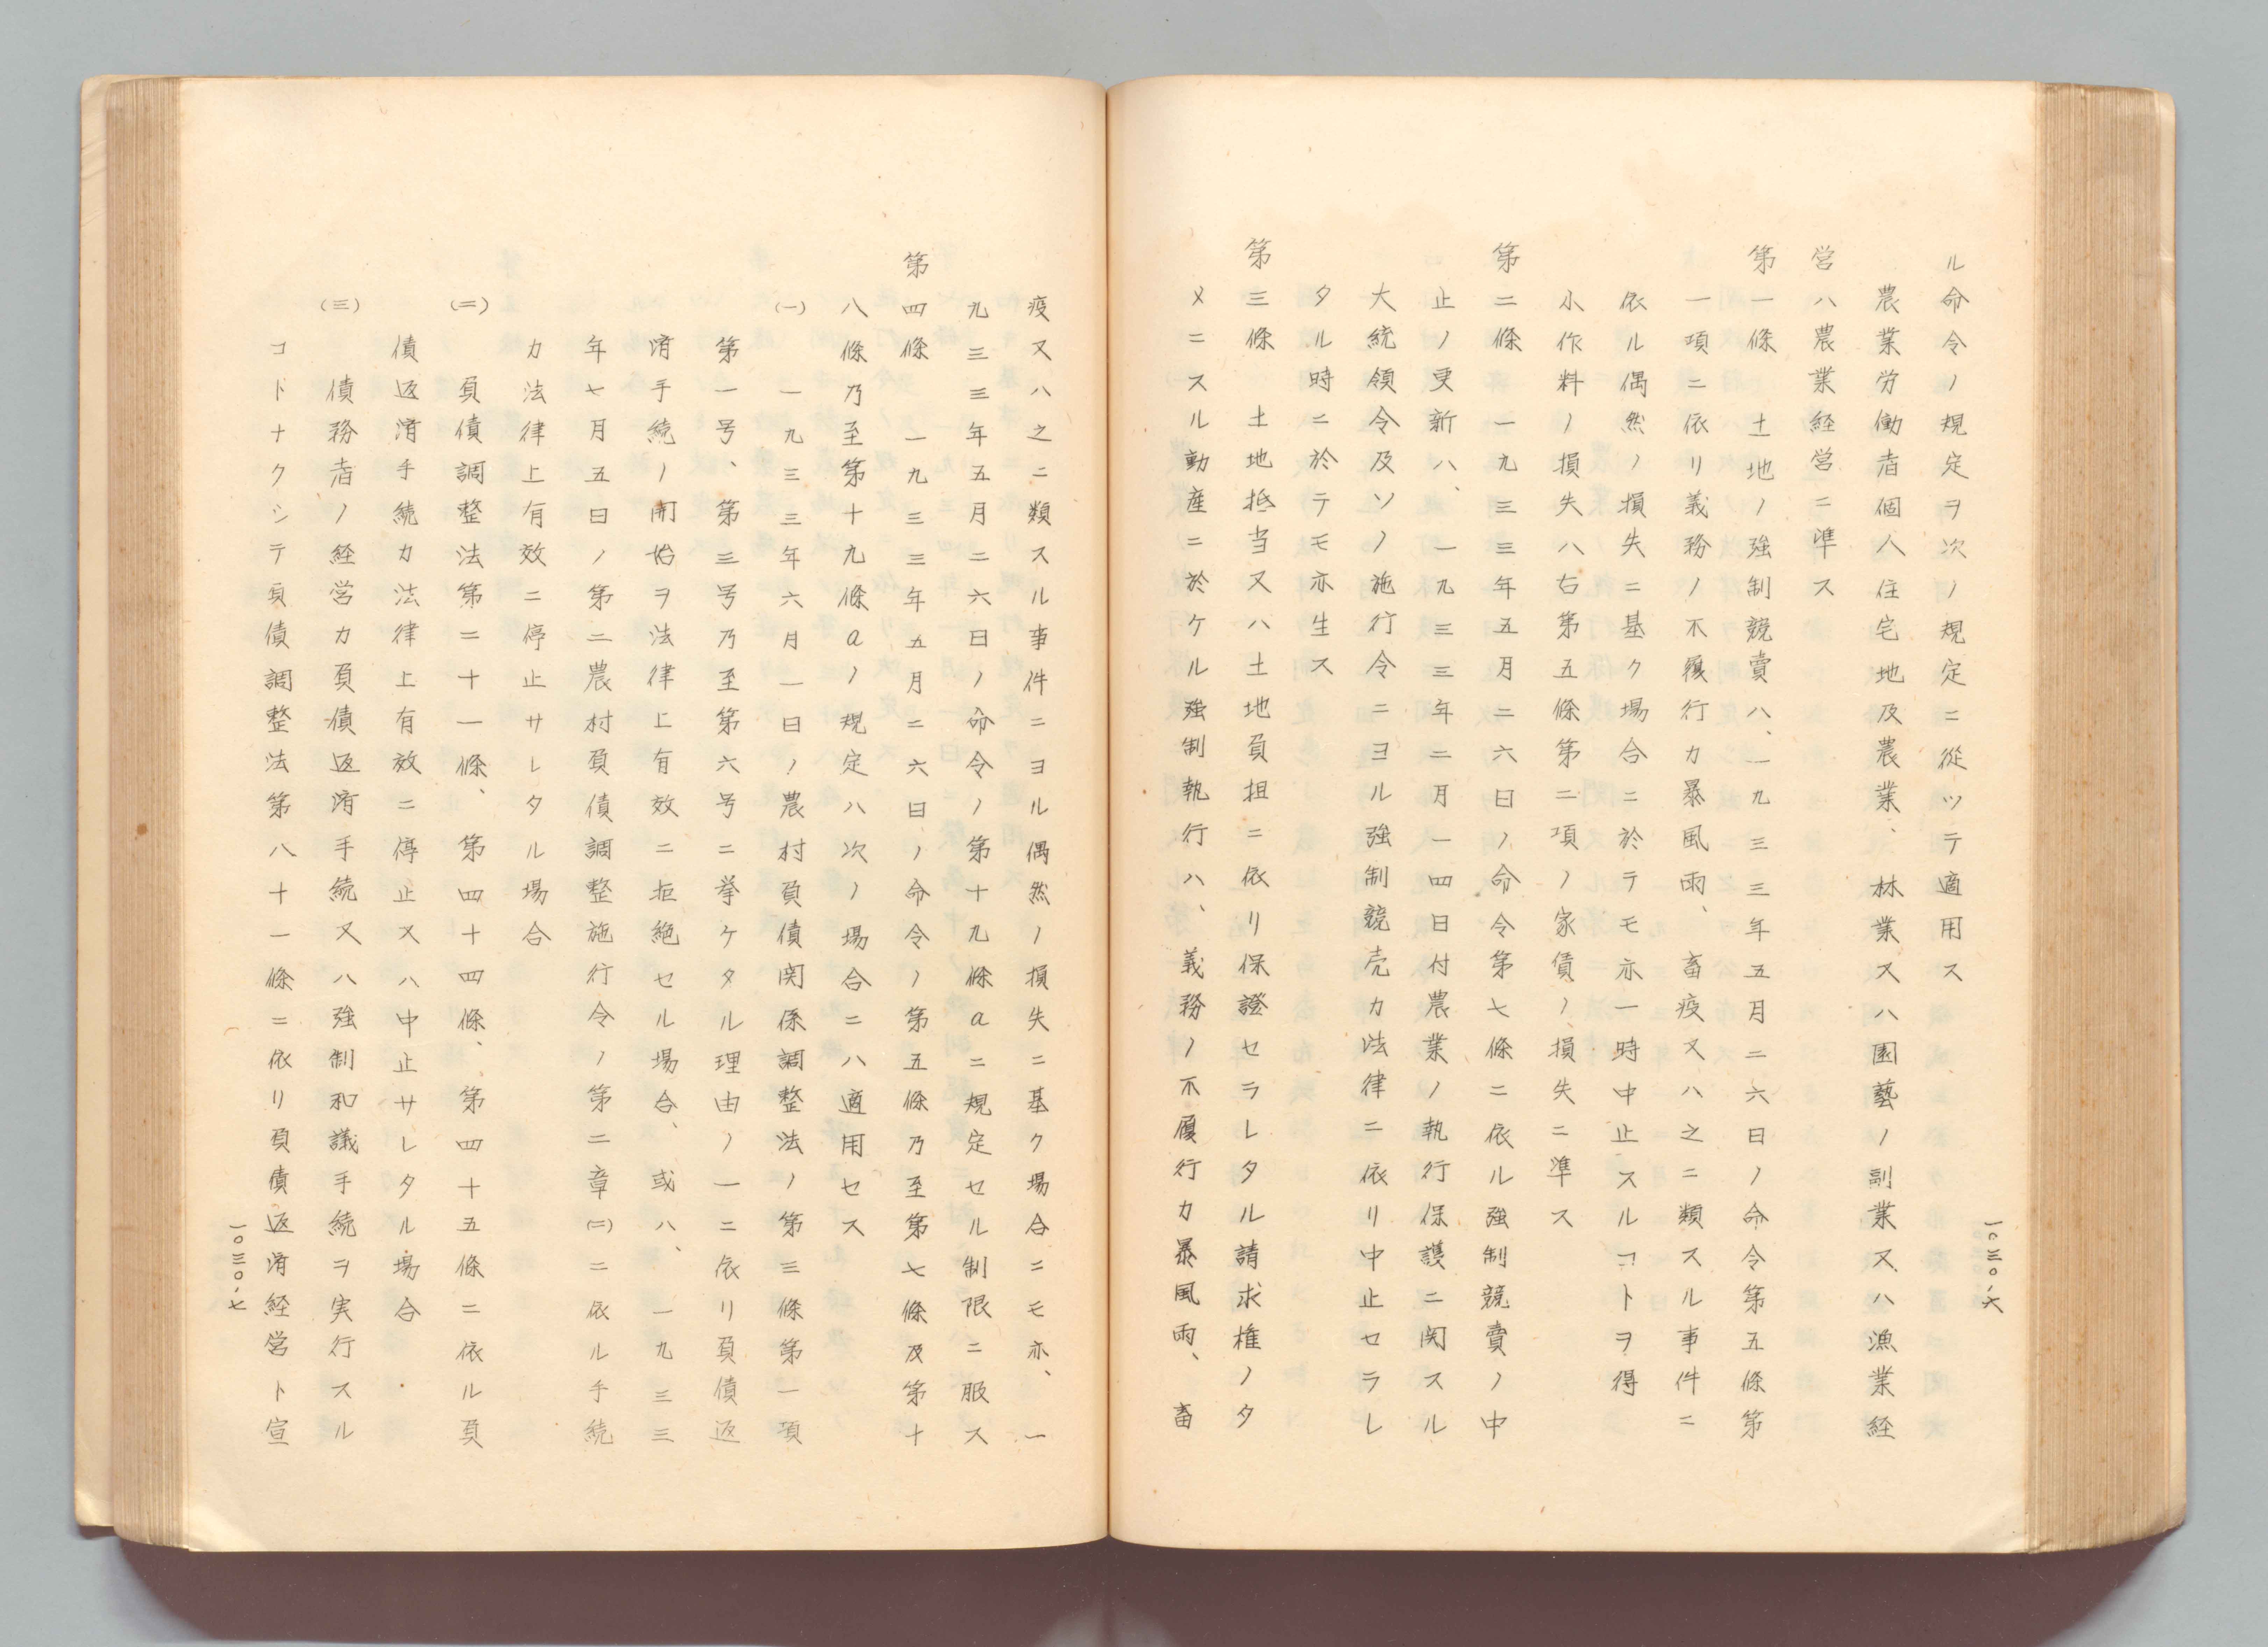 ル命令ノ規定ヲ次ノ規定ニ從ツテ適用ス
農業労働者個人住宅地及農業、林業又ハ園藝ノ副業又ハ漁業経
営ハ農業経営ニ準ス
第一條　土地ノ強制競賣ハ、一九三三年五月二六日ノ命令第五條第
一項ニ依リ義務ノ不履行カ暴風雨、畜疫又ハ之ニ類スル事件ニ
依ル偶然ノ損失ニ基ク場合ニ於テモ亦一時中止スルコトヲ得
小作料ノ損失ハ右第五條第二項ノ家債ノ損失ニ準ス
第二條　一九三三年五月二六日ノ命令第七條ニ依ル強制競賣ノ中
止ノ更新ハ、一九三三年二月一四日付農業ノ執行保護ニ関スル
大統領令及ソノ施行令ニヨル強制競売カ法律ニ依リ中止セラレ
タル時ニ於テモ亦生ス
第三條　土地抵当又ハ土地負担ニ依リ保證セラレタル請求権ノタ
メニスル動産ニ於ケル強制執行ハ、義務ノ不履行カ暴風雨、畜
一〇三〇、六
疫又ハ之ニ類スル事件ニヨル偶然ノ損失ニ基ク場合ニモ亦、一
九三三年五月二六日ノ命令ノ第十九條aニ規定セル制限ニ服ス
第四條　一九三三年五月二六日ノ命令ノ第五條乃至第七條及第十
八條乃至第十九條aノ規定ハ次ノ場合ニハ適用セス
(一)　一九三三年六月一日ノ農村負債関係調整法ノ第三條第一項
第一号、第三号乃至第六号ニ挙ケタル理由ノ一ニ依リ負債返
済手続ノ開始ヲ法律上有效ニ拒絶セル場合、或ハ、一九三三
年七月五日ノ第二農村負債調整施行令ノ第二章(二)ニ依ル手続
カ法律上有效ニ停止サレタル場合
(二)　負債調整法第二十一條、第四十四條、第四十五條ニ依ル負
債返済手続カ法律上有效ニ停止又ハ中止サレタル場合
(三)　債務者ノ経営カ負債返済手続又ハ強制和議手続ヲ実行スル
コトナクシテ負債調整法第八十一條ニ依リ負債返済経営ト宣
一〇三〇、七